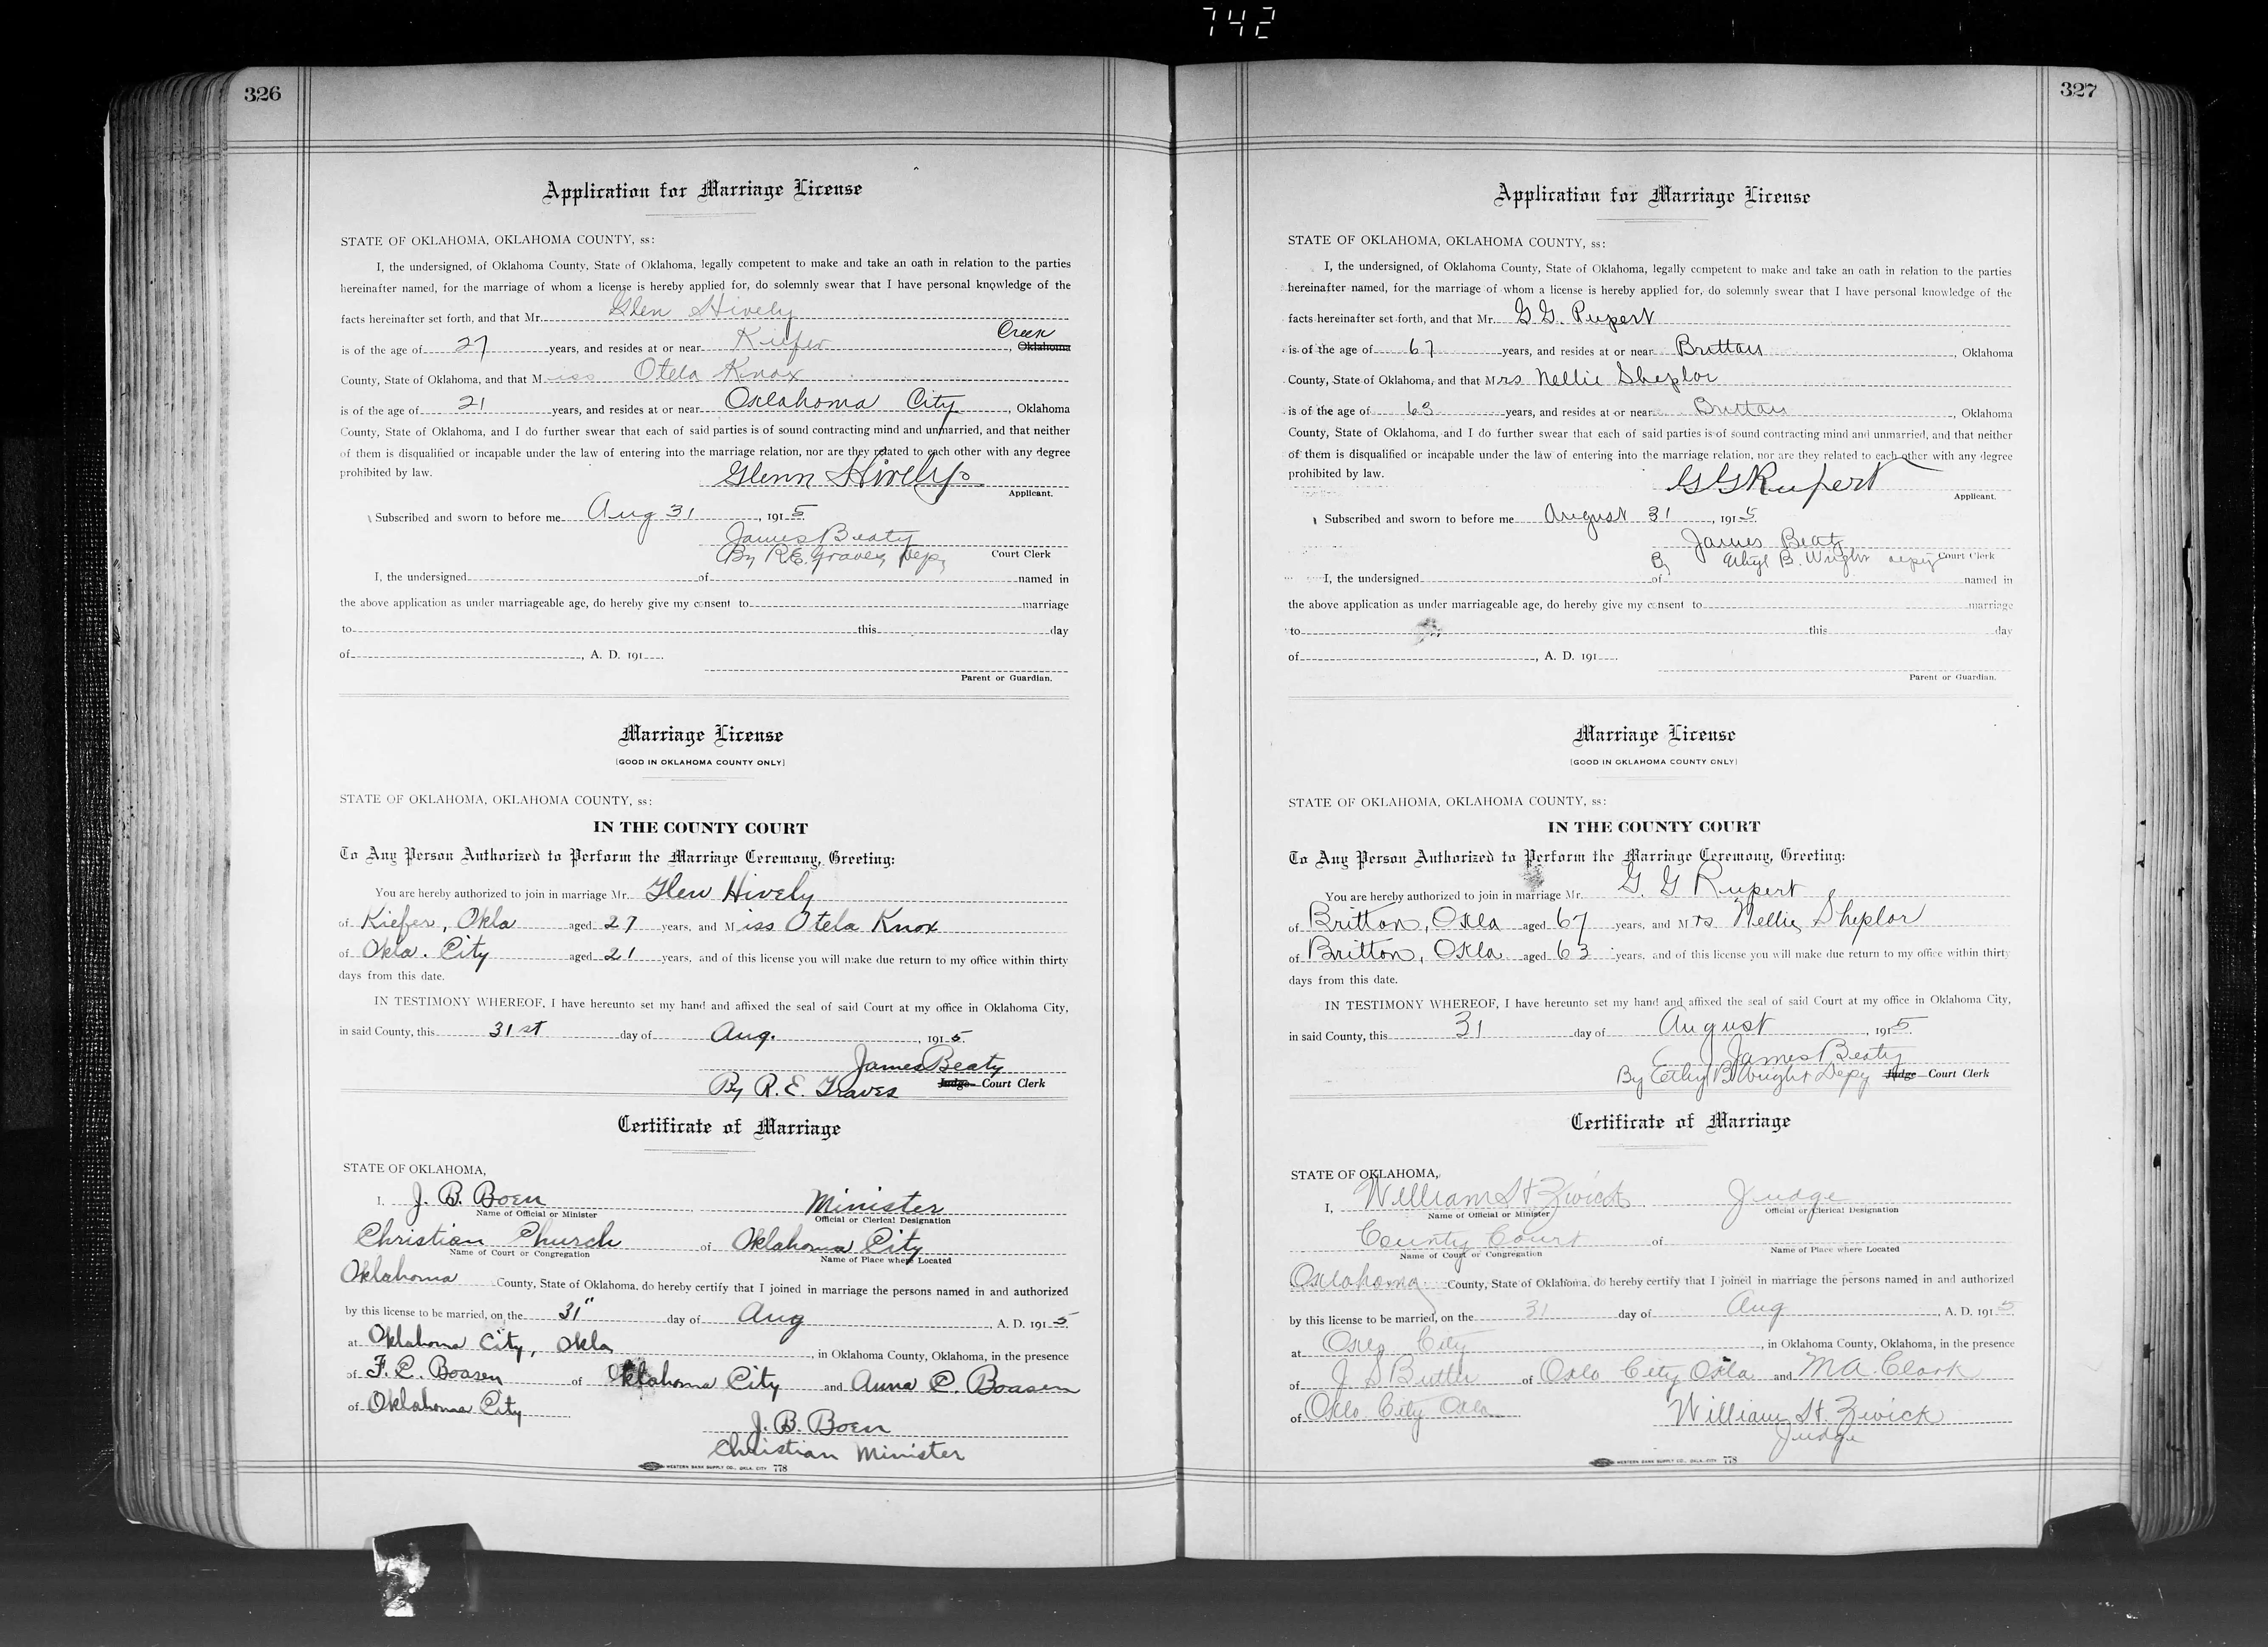 742
326
Application for Marriage License
STATE OF OKLAHOMA, OKLAHOMA COUNTY, ss:
I, the undersigned, of Oklahoma County, State of Oklahoma, legally competent to make and take an oath in relation to the parties
hereinafter named, for the marriage of whom a license is hereby applied for, do solemnly swear that I have personal knowledge of the
facts hereinafter set forth, and that Mr. Glen Hively
is of the age of 27 years, and resides at or near Kiefer, Creek Oklahoma
County, State of Oklahoma, and that Miss Otela Knox
is of the age of 21 years, and resides at or near Oklahoma City, Oklahoma
County, State of Oklahoma, and I do further swear that each of said parties is of sound contracting mind and unmarried, and that neither
of them is disqualified or incapable under the law of entering into the marriage relation, nor are they related to each other with any degree
prohibited by law. Glenn Hively
Applicant.
Subscribed and sworn to before me Aug 31, 1915
James Beaty
By R.E. Graves Depy Court Clerk
I, the undersigned of named in
the above application as under marriageable age, do hereby give my consent to marriage
to this day
of , A. D. 191
Parent or Guardian.
Marriage License
[GOOD IN OKLAHOMA COUNTY ONLY]
STATE OF OKLAHOMA, OKLAHOMA COUNTY, ss:
IN THE COUNTY COURT
To Any Person Authorized to Perform the Marriage Ceremony, Greeting:
You are hereby authorized to join in marriage Mr. Glen Hively
of Kiefer, Okla aged 27 years, and Miss Otela Knox
of Okla. City aged 21 years, and of this license you will make due return to my office within thirty
days from this date.
IN TESTIMONY WHEREOF, I have hereunto set my hand and affixed the seal of said Court at my office in Oklahoma City,
in said County, this 31st day of Aug., 1915.
James Beaty
By R. E. Graves Judge Court Clerk
Certificate of Marriage
STATE OF OKLAHOMA,
I, J. B. Boen Minister
Name of Official or Minister Official or Clerical Designation
Christian Church of Oklahoma City
Name of Court or Congregation Name of Place where Located
Oklahoma County, State of Oklahoma, do hereby certify that I joined in marriage the persons named in and authorized
by this license to be married, on the 31" day of Aug, A. D. 1915
at Oklahoma City, Okla, in Oklahoma County, Oklahoma, in the presence
of F. C. Boasen of Oklahoma City and Anna C. Boasen
of Oklahoma City
J. B. Boen
Christian Minister
WESTERN BANK SUPPLY CO., OKLA. CITY 778
327
Application for Marriage License
STATE OF OKLAHOMA, OKLAHOMA COUNTY, ss:
I, the undersigned, of Oklahoma County, State of Oklahoma, legally competent to make and take an oath in relation to the parties
hereinafter named, for the marriage of whom a license is hereby applied for, do solemnly swear that I have personal knowledge of the
facts hereinafter set forth, and that Mr. G.G. Rupert
is of the age of 67 years, and resides at or near Britton, Oklahoma
County, State of Oklahoma, and that Mrs Nellie Sheplor
is of the age of 63 years, and resides at or near Britton, Oklahoma
County, State of Oklahoma, and I do further swear that each of said parties is of sound contracting mind and unmarried, and that neither
of them is disqualified or incapable under the law of entering into the marriage relation, nor are they related to each other with any degree
prohibited by law. G G Rupert
Applicant.
Subscribed and sworn to before me August 31, 1915
James Beaty
By Ethyl B. Wright depy Court Clerk
I, the undersigned of named in
the above application as under marriageable age, do hereby give my consent to marriage
to this day
of , A. D. 191
Parent or Guardian.
Marriage License
[GOOD IN OKLAHOMA COUNTY ONLY]
STATE OF OKLAHOMA, OKLAHOMA COUNTY, ss:
IN THE COUNTY COURT
To Any Person Authorized to Perform the Marriage Ceremony, Greeting:
You are hereby authorized to join in marriage Mr. G. G Rupert
of Britton, Okla aged 67 years, and Mrs. Nellie Sheplor
of Britton, Okla aged 63 years, and of this license you will make due return to my office within thirty
days from this date.
IN TESTIMONY WHEREOF, I have hereunto set my hand and affixed the seal of said Court at my office in Oklahoma City,
in said County, this 31 day of August, 1915.
James Beaty
By Ethyl B Wright Depy Judge Court Clerk
Certificate of Marriage
STATE OF OKLAHOMA,
I, William H Zwick Judge
Name of Official or Minister Official or Clerical Designation
County Court of
Name of Court or Congregation Name of Place where Located
Oklahoma County, State of Oklahoma, do hereby certify that I joined in marriage the persons named in and authorized
by this license to be married, on the 31 day of Aug, A. D. 1915
at Okla City, in Oklahoma County, Oklahoma, in the presence
of J. S Butler of Okla City Okla and M A. Clark
of Okla City Okla William H. Zwick
Judge
WESTERN BANK SUPPLY CO., OKLA. CITY 778